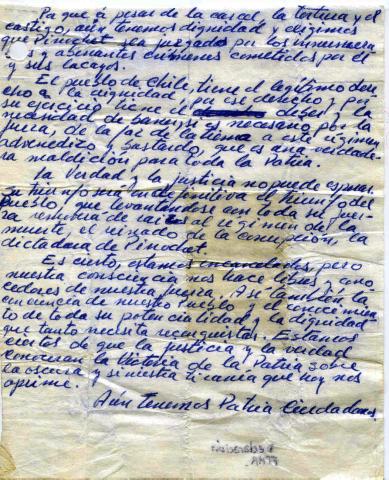 Pa que á pesar de la carcel, la tortura y el
castigo, aún tenemos dignidad y exigimos
que Pinochet sea juzgado por los innumera
les y aberrantes crimenes cometidos por el
y sus lacayos.
El pueblo de Chile, tiene el legítimo dere
cho a la dignidad, por ese derecho y por
su ejercicio tiene el deber y la
necesidad de barrer, si es necesario por la
fuerza, de la faz de la tierra a este régimen
advenedizo y bastardo, que es una verdade
ra maldición para toda la Patria.
La Verdad y la justicia no puede esperar
su triunfo
Pueblo, que levantandose con toda su fuer
za removera de raices al régimen de la
muerte, el reinado de la corrupción, la
dictadura de Pinochet.
Es cierto, estamos encarcelados, pero
nuestra consciencia nos hace libres y cono
cedores de nuestra fuerza. Así tambien la
conciencia de nuestro Pueblo y el conocimien
to de toda su potencialidad, la dignidad
que tanto necesita reconquistar. Estamos
ciertos de que la justicia y la verdad
conoceran la Victoria de la Patria sobre
la oscura y siniestra tiranía que hoy nos
oprime.
Aún tenemos Patria Ciudadanos.
Declaración